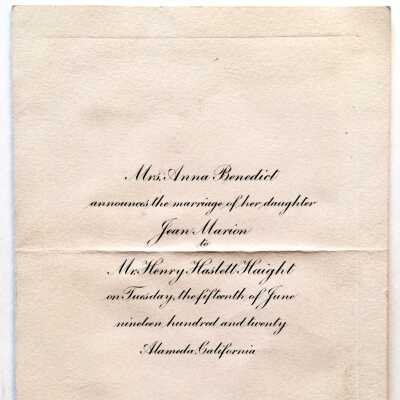 Mrs. Anna Benedict
announces the marriage of her daughter
Jean Marion
to
Mr. Henry Haslett Haight
on Tuesday, the fifteenth of June
nineteen hundred and twenty
Alameda, California